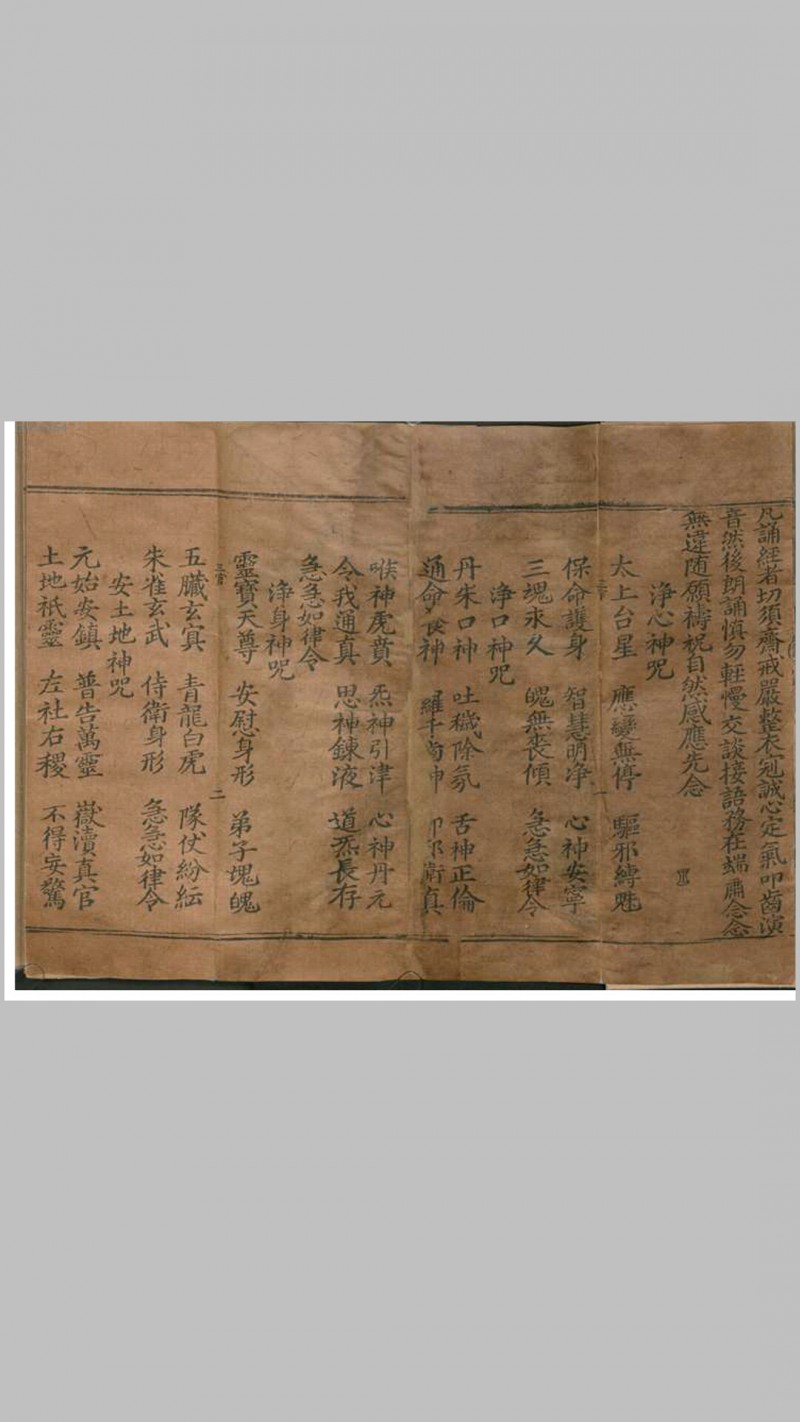 凡誦經者切須齋戒嚴整衣冠誠心定氣叩齒演
音然後朗誦慎勿輕慢交談接語務在端肅念念
無違随願禱祝自然感應先念
淨心神咒
太上台星 應變無停 驅邪縛魅
保命護身 智慧明净 心神安寧
三魂永久 魄無喪傾 急急如律令
淨口神咒
丹朱口神 吐穢除氛 舌神正倫
通命養神 羅千齒神 却邪衛真
喉神虎賁 炁神引津 心神丹元
令我通真 思神鍊液 道炁長存
急急如律令
淨身神咒
靈寶天尊 安慰身形 弟子塊魄
二
五臟玄冥 青龍白虎 隊仗紛紜
朱雀玄武 侍衛身形 急急如律令
安土地神咒
元始安鎮 普告萬靈 嶽瀆真官
土地祇靈 左社右稷 不得妄驚